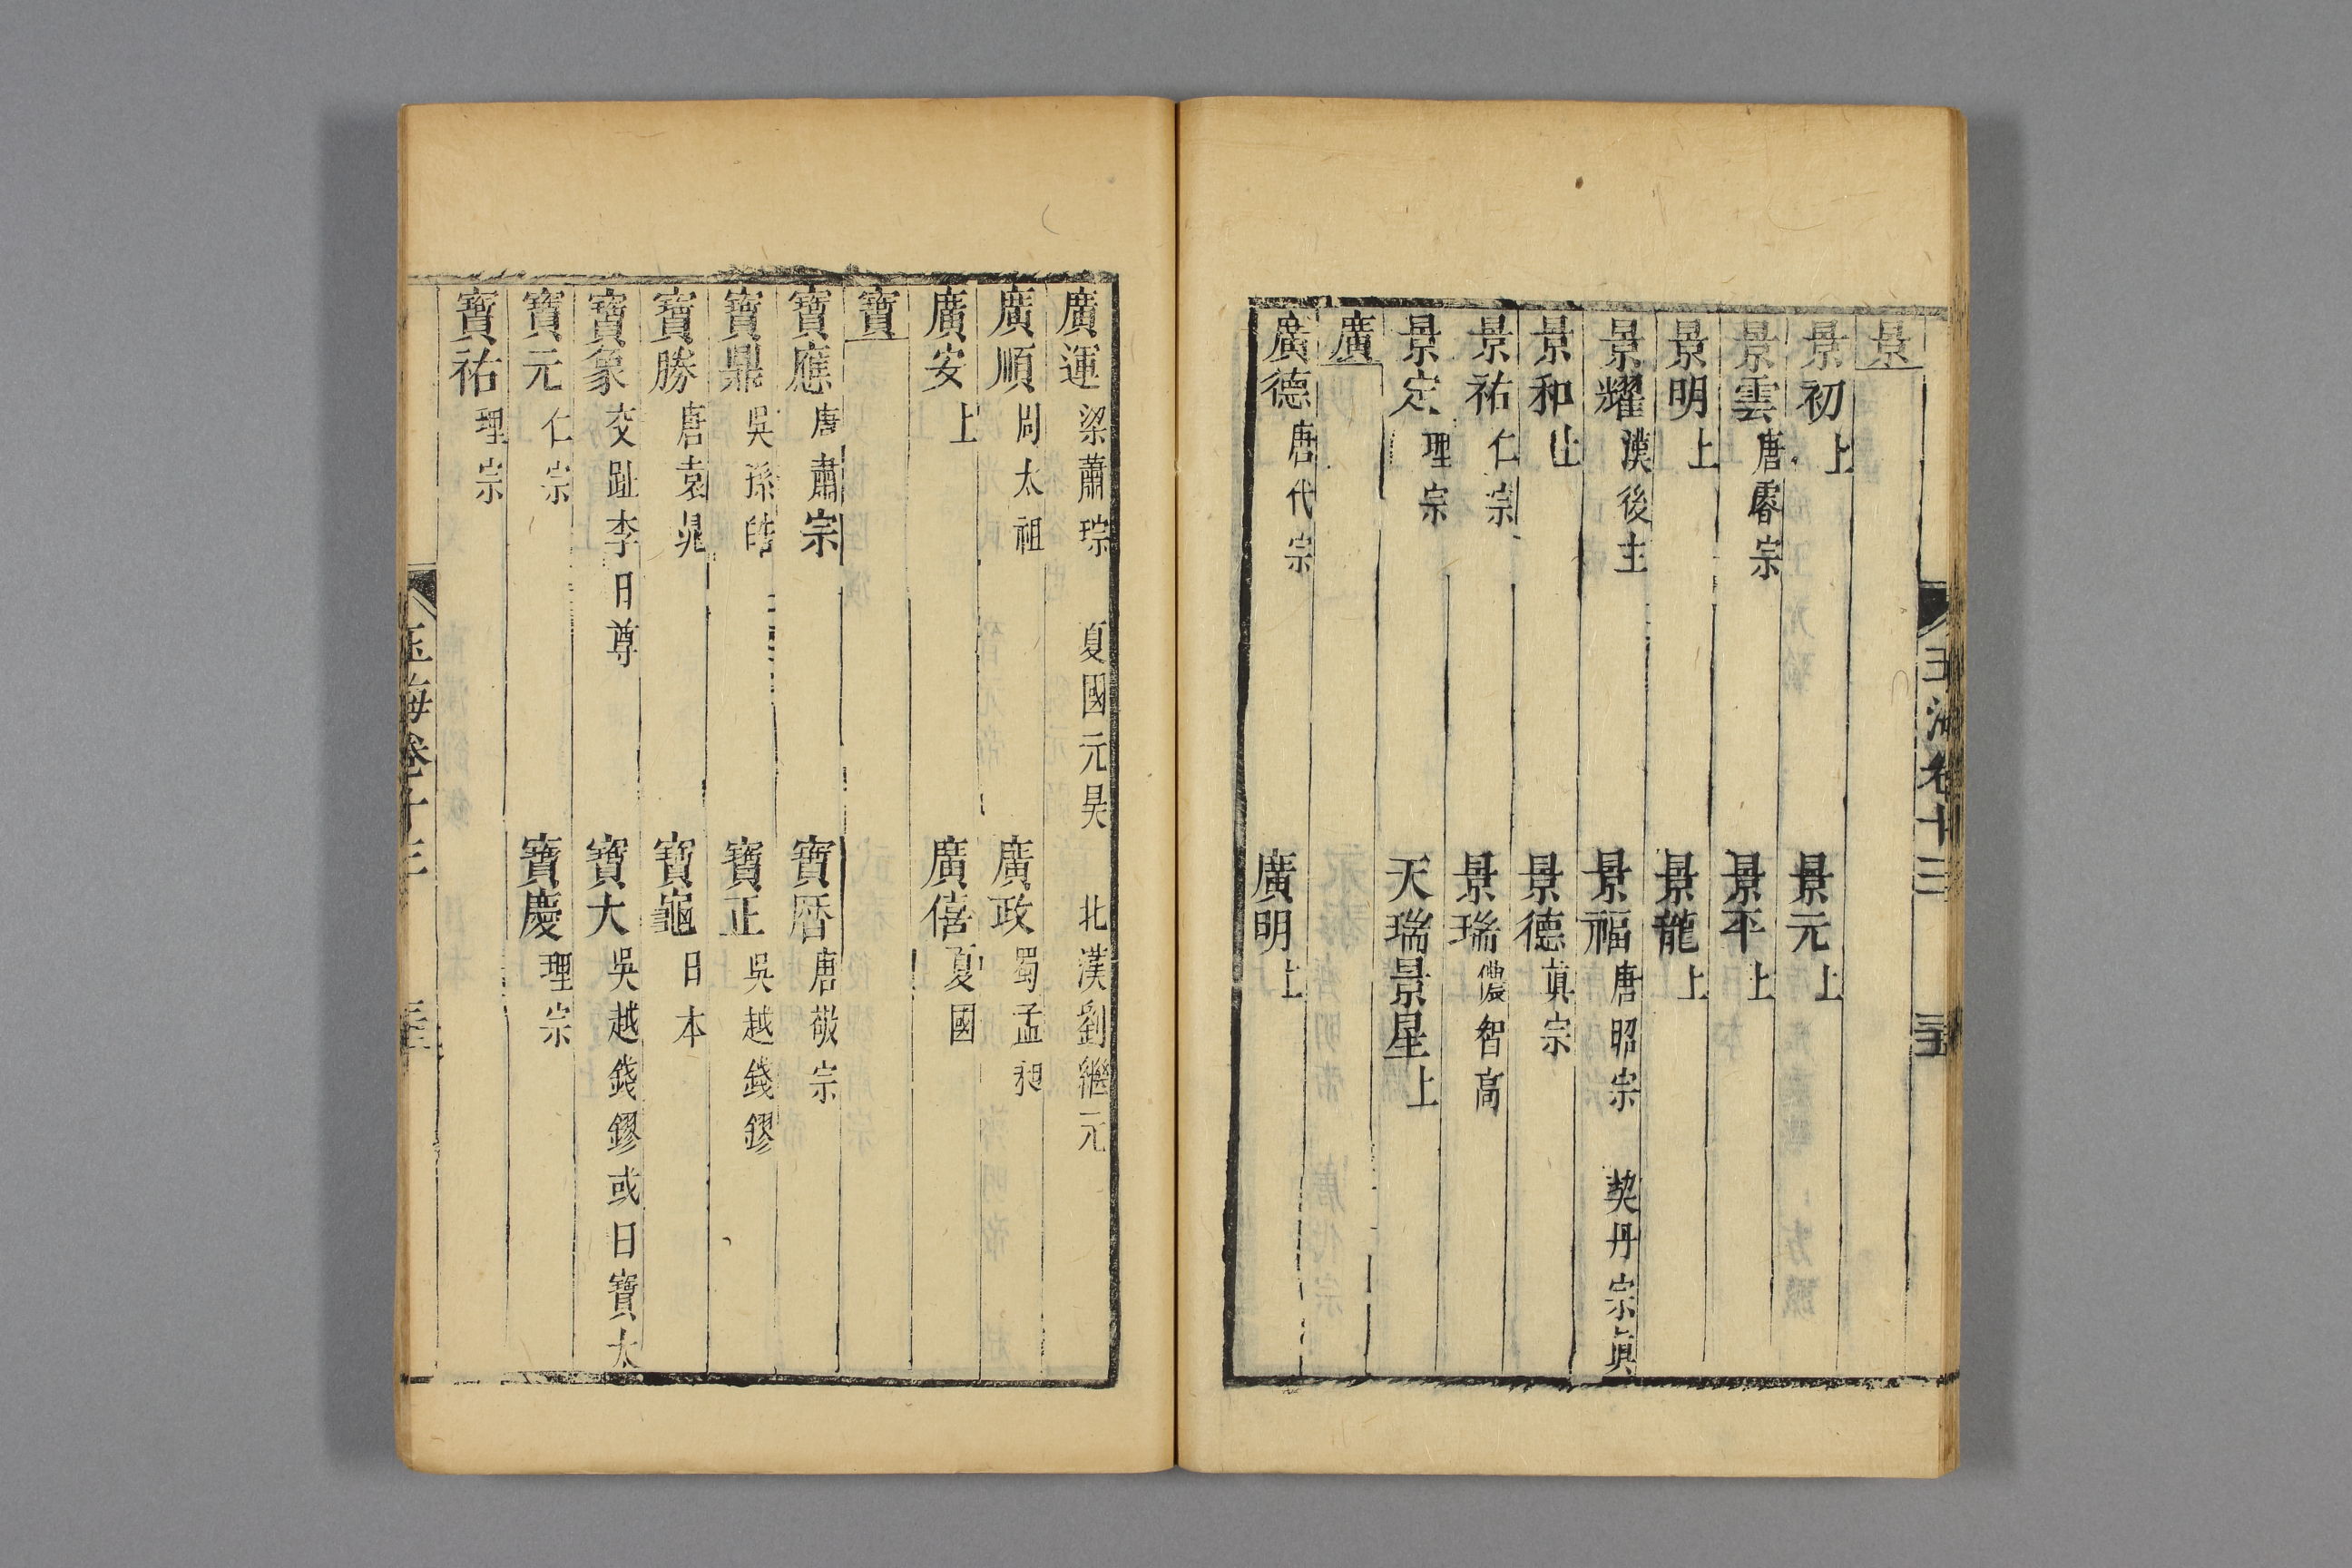 玉海卷十三
景
景初上 景元上
景雲唐睿宗 景平上
景明上 景龍上
景耀漢後主 景福唐昭宗 契丹宗眞
景和上 景德眞宗
景祐仁宗 景瑞儂智高
景定理宗 天瑞景星上
廣
廣德唐代宗 廣明上
廣運梁蕭琮 夏國元昊 北漢劉繼元
廣順周太祖 廣政蜀孟昶
廣安上 廣僖夏國
寶
寶應唐肅宗 寶曆唐敬宗
寶鼎吳孫皓 寶正吳越錢鏐
寶勝唐袁晁 寶龜日本
寶象交趾李日尊 寶大吳越錢鏐或曰寶太
寶元仁宗 寶慶理宗
寶祐理宗
玉海卷十三